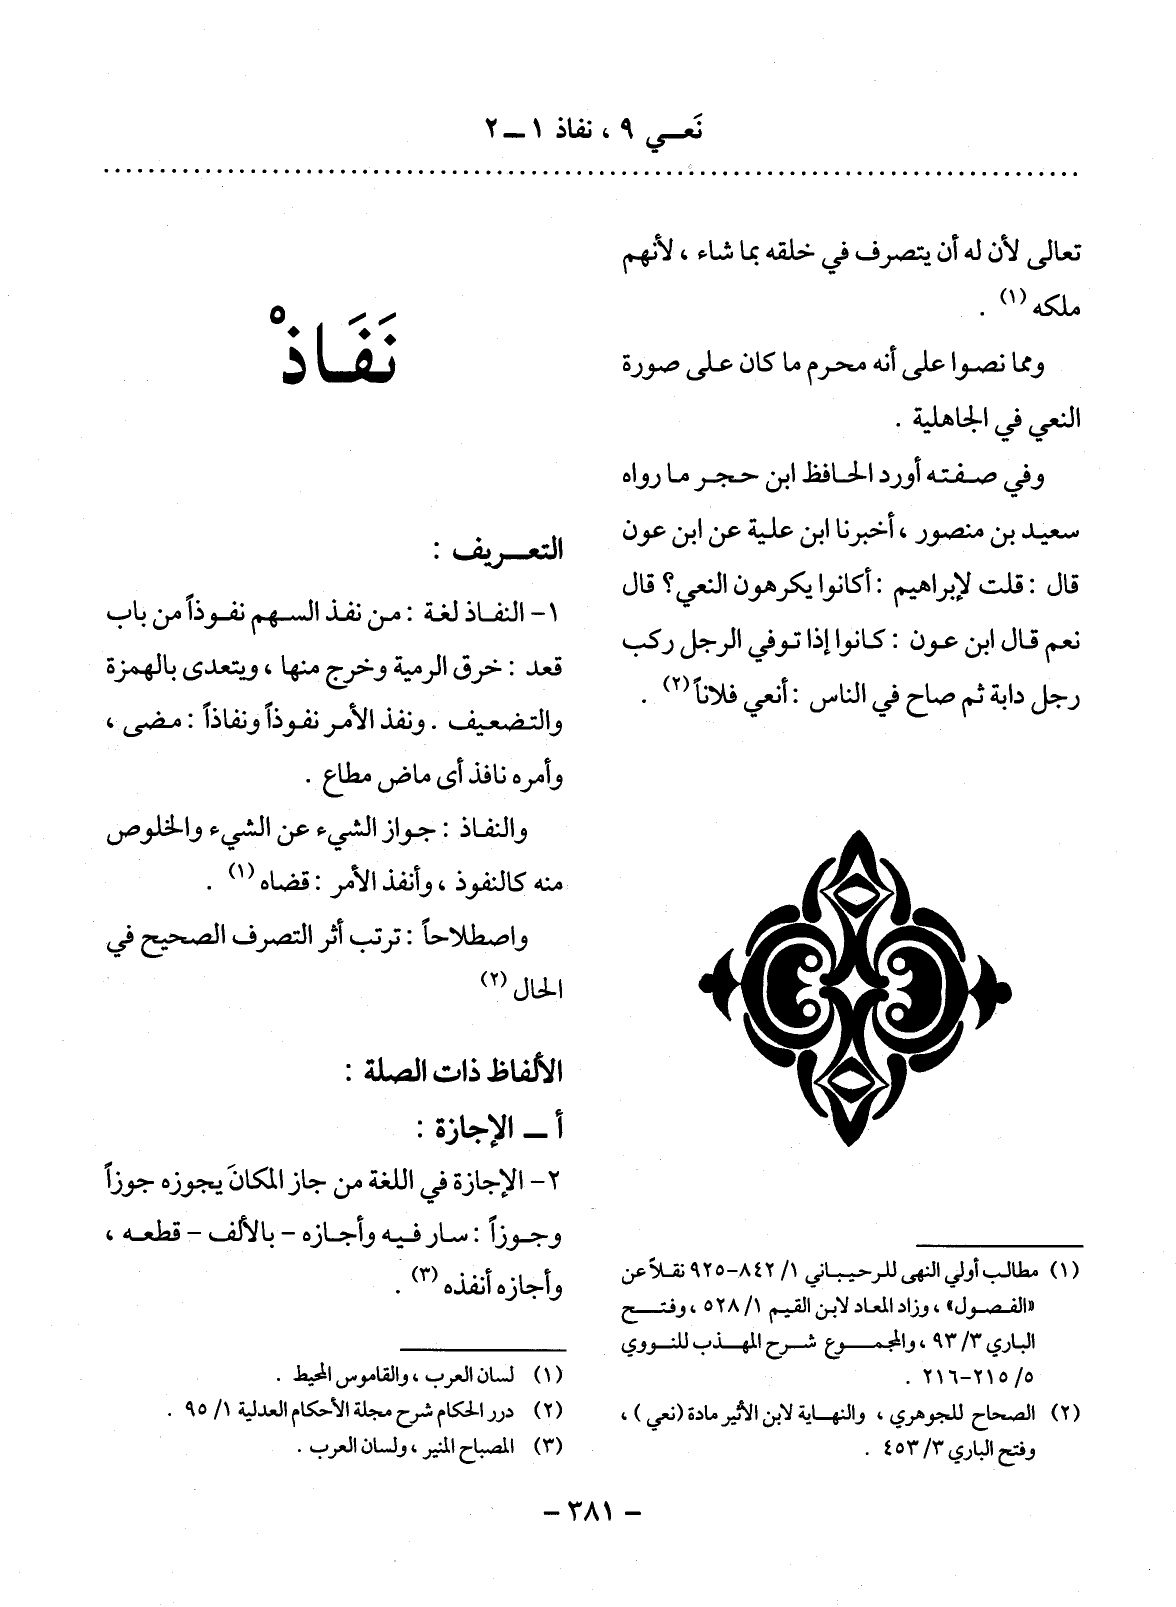 نَعـــي ٩ ، نفاذ ١ ــ ٢
تعالى لأن له أن يتصرف في خلقه بما شاء ، لأنهم
ملكه (١) .
ومما نصوا على أنه محرم ما كان على صورة
النعي في الجاهلية .
وفي صفته أورد الحافظ ابن حجر ما رواه
سعيد بن منصور ، أخبرنا ابن علية عن ابن عون
قال : قلت لإبراهيم : أكانوا يكرهون النعي؟ قال
نعم قال ابن عون : كانوا إذا توفي الرجل ركب
رجل دابة ثم صاح في الناس : أنعي فلاناً (٢) .
(١) مطالب أولي النهى للرحيباني ١/ ٨٤٢-٩٢٥ نقلاً عن
«الفصول» ، وزاد المعاد لابن القيم ١/ ٥٢٨ ، وفتح
الباري ٣/ ٩٣ ، والمجموع شرح المهذب للنووي
٥/ ٢١٥-٢١٦ .
(٢) الصحاح للجوهري ، والنهاية لابن الأثير مادة (نعي) ،
وفتح الباري ٣/ ٤٥٣ .
نَفَاذْ
التعـــريف :
١- النفاذ لغة : من نفذ السهم نفوذاً من باب
قعد : خرق الرمية وخرج منها ، ويتعدى بالهمزة
والتضعيف . ونفذ الأمر نفوذاً ونفاذاً : مضى ،
وأمره نافذ أى ماض مطاع .
والنفاذ : جواز الشيء عن الشيء والخلوص
منه كالنفوذ ، وأنفذ الأمر : قضاه (١) .
واصطلاحاً : ترتب أثر التصرف الصحيح في
الحال (٢)
الألفاظ ذات الصلة :
أ ــ الإجازة :
٢- الإجازة في اللغة من جاز المكانَ يجوزه جوزاً
وجوزاً : سار فيه وأجازه – بالألف – قطعه ،
وأجازه أنفذه (٣) .
(١) لسان العرب ، والقاموس المحيط .
(٢) درر الحكام شرح مجلة الأحكام العدلية ١/ ٩٥ .
(٣) المصباح المنير ، ولسان العرب .
– ٣٨١ –